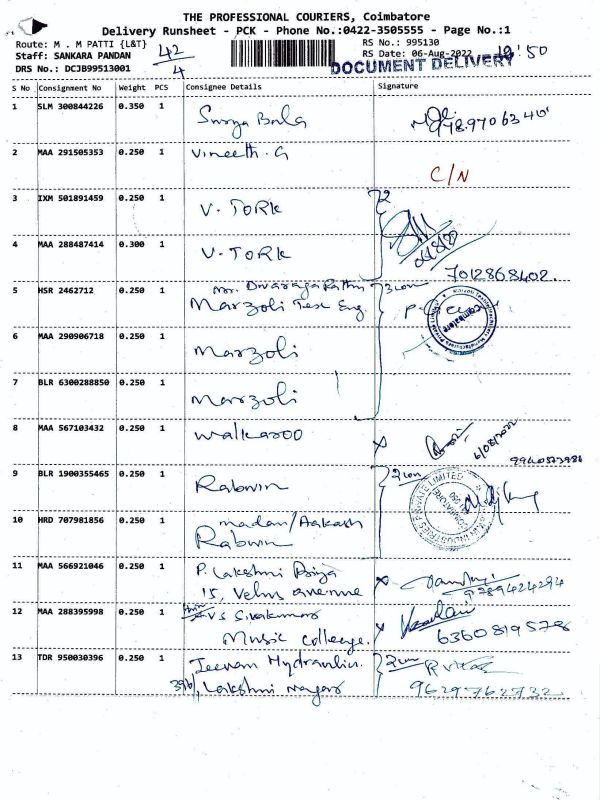 THE PROFESSIONAL COURIERS, Coimbatore
Delivery Runsheet - PCK - Phone No.:0422-3505555 - Page No.:1
Route: M . M PATTI {L&T}
Staff: SANKARA PANDAN
DRS No.: DCJB99513001
42
4
RS No.: 995130
RS Date: 06-Aug-2022
DOCUMENT DELIVERY
S No Consignment No Weight PCS Consignee Details Signature
1 SLM 300844226 0.350 1 Surya Bala
2 MAA 291505353 0.250 1 Vineeth. G C/N
3 IXM 501891459 0.250 1 V. TORK
4 MAA 288487414 0.300 1 V. TORK 7012868402.
5 HSR 2462712 0.250 1 Marzoli Tex Eng
6 MAA 290906718 0.250 1 Marzoli
7 BLR 6300288850 0.250 1 Marzoli
8 MAA 567103432 0.250 1 Walkaroo 6/08/2022
9 BLR 1900355465 0.250 1 Rabwin
10 HRD 707981856 0.250 1 madan/Aakash
Rabwin
11 MAA 566921046 0.250 1 P. Lakshmi Priya
15, Velms avenue 9789424294
12 MAA 288395998 0.250 1 V S Sivakumar
Music colleege. 6360819578
13 TDR 950030396 0.250 1 Jeevam Hydraulin.
396, Lakshmi Nagar 9629762732